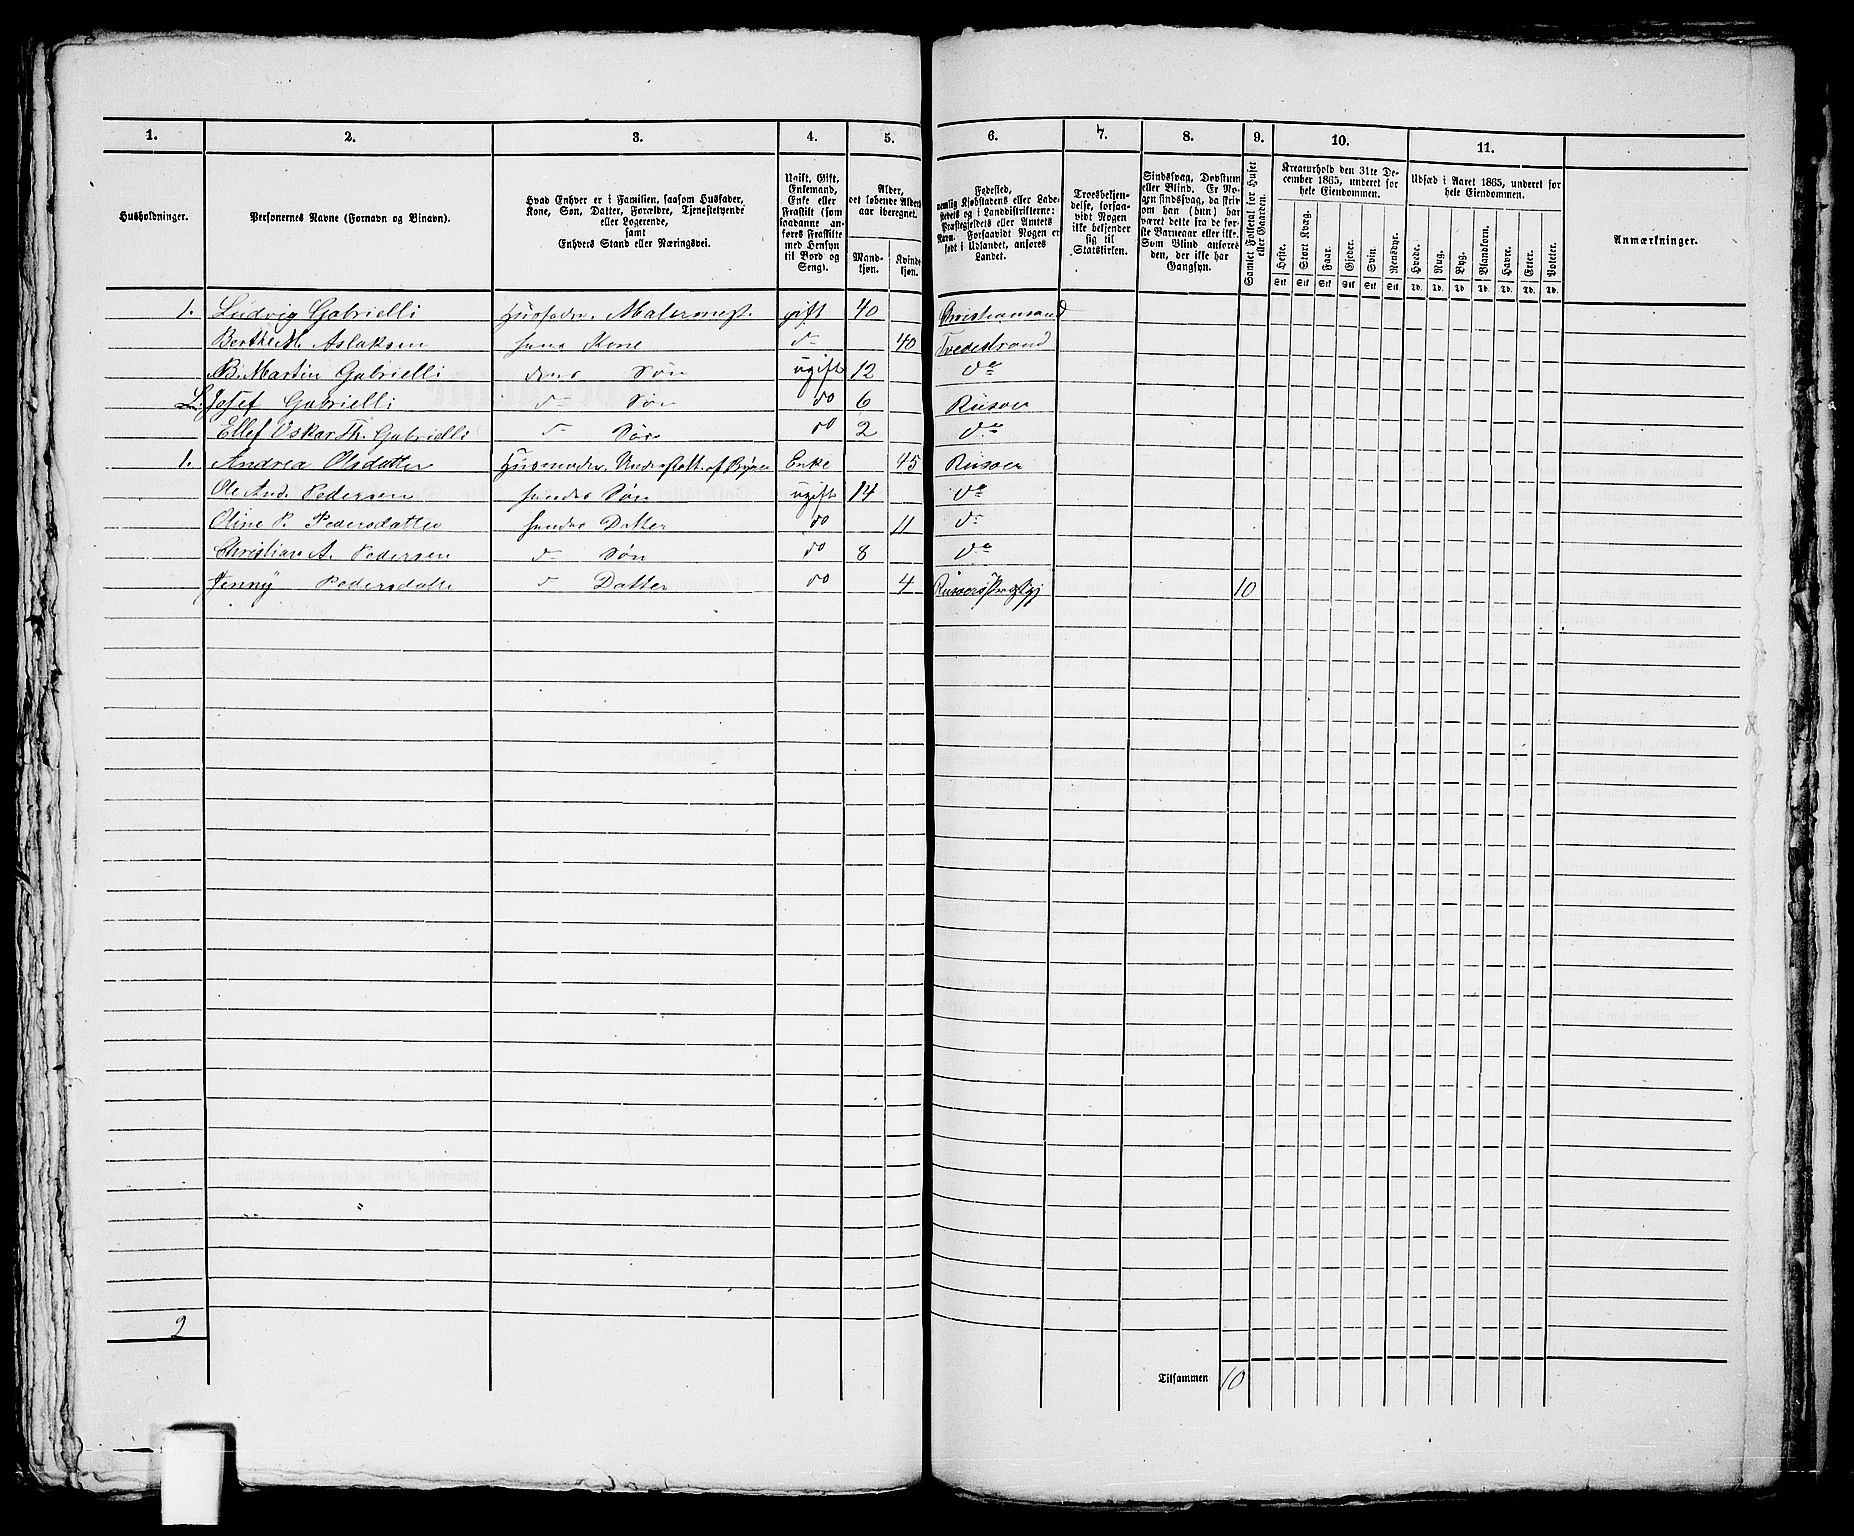 1. 2. 3. 4. 5. 6. 7. 8. 9. 10. 11.
Husholdninger.
Personernes Navne (Fornavn og Binavn).
Hvad Enhver er i Familien, saasom Husfader,
Kone, Søn, Datter, Forældre, Tjenestetyende
eller Logerende,
samt
Enhvers Stand eller Næringsvei.
Ugift, Gift,
Enkemand,
Enke eller
Fraskilt (som
saadanne an-
føres Fraskilte
med Hensyn
til Bord og
Seng).
Alder,
det løbende Alders-
aar iberegnet.
Mand-
kjøn.
Kvinde-
kjøn.
Fødested,
nemlig Kjøbstadens eller Lade-
stedets og i Landdistrikterne:
Præstegjeldets eller Amtets
Navn. Forsaavidt Nogen er
født i Udlandet, anføres
Landet.
Troesbekjen-
delse, forsaa-
vidt Nogen
ikke bekjender
sig til
Statskirken.
Sindssvag, Døvstum
eller Blind. Er No-
gen sindssvag, da skriv
om han (hun) har
været dette fra de før-
ste Barneaar eller ikke.
Som Blind anføres
den, der ikke har
Gangsyn.
Samlet Folketal for Huset
eller Gaarden.
Kreaturhold den 31te De-
cember 1865, underet for
hele Eiendommen.
Heste. Stort Kvæg. Faar. Gjeder. Svin. Rensdyr.
Stk Stk Stk Stk Stk Stk
Udsæd i Aaret 1865, underet for
hele Eiendommen.
Hvede. Rug. Byg. Blandkorn. Havre. Erter. Poteter.
Td. Td. Td. Td. Td. Td. Td.
Anmærkninger.
1. Ludvig Gabrielli Husfader, Malermest. gift 40 Christiansand
Berthe M. Aslaksen hans Kone do 40 Tvedestrand
B. Martin Gabrielli deres Søn ugift 12 do
L. Josef Gabrielli do Søn do 6 Risøer
Ellef Oskar Th. Gabrielli do Søn do 2 do
1. Andrea Olsdatter Husmoder, Understøtt. af Byen Enke 45 Risøer
Ole And. Pedersen hendes Søn ugift 14 do
Oline P. Pedersdatter hendes Datter do 11 do
Christian A. Pedersen do Søn do 8 do
Jenny Pedersdatte do Datter do 4 Risøers Prstgj 10
2
Tilsammen 10